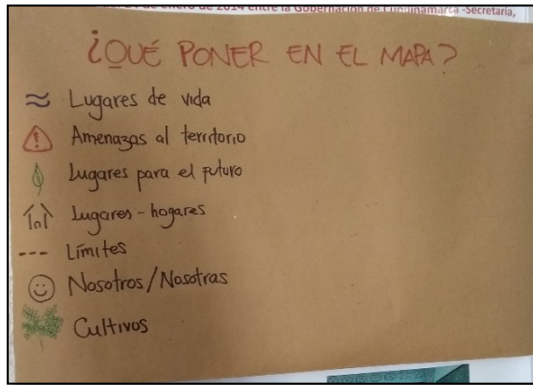 de enero de 2014 entre la Gobernación de Cundinamarca -Secretaría,
¿QUÉ PONER EN EL MAPA?
Lugares de vida
Amenazas al territorio
Lugares para el futuro
Lugares - hogares
Límites
Nosotros/Nosotras
Cultivos